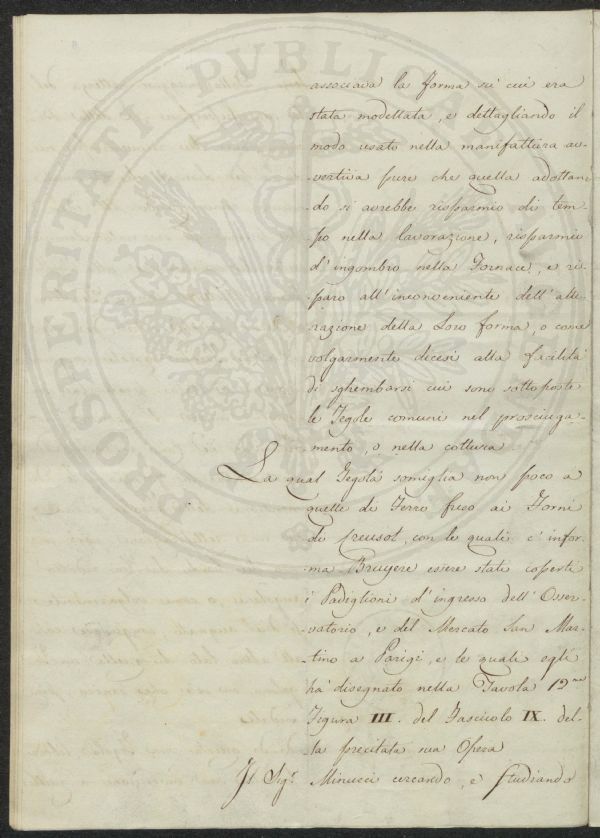 associava la forma su cui era
stata modellata, e dettagliando il
modo usato nella manifattura av-
-vertiva pure che quella adottan-
-do si avrebbe risparmio di tem-
-po nella lavorazione, risparmio
d'ingombro nella Fornace, e ri-
-paro all'inconveniente dell'alte-
-razione della Loro forma, o come
volgarmente dicesi alla facilità
di sghembarsi cui sono sottoposte
le Tegole comuni nel prosciuga-
-mento, o nella cottura
La qual Tegola somiglia non poco a
quelle di Ferro fuso ai Forni
di Creusot, con le quali c'infor-
-ma Bruyere essere stati coperti
i Padiglioni d'ingresso dell'Osser-
-vatorio, e del Mercato San Mar-
-tino a Parigi, e le quali egli
ha disegnato nella Tavola 12.ma
Figura III. del Fascicolo IX. del-
-la precitata sua Opera
Il Sig.r Minucci cercando, e studiando
PROSPERITATI PVBLICAE